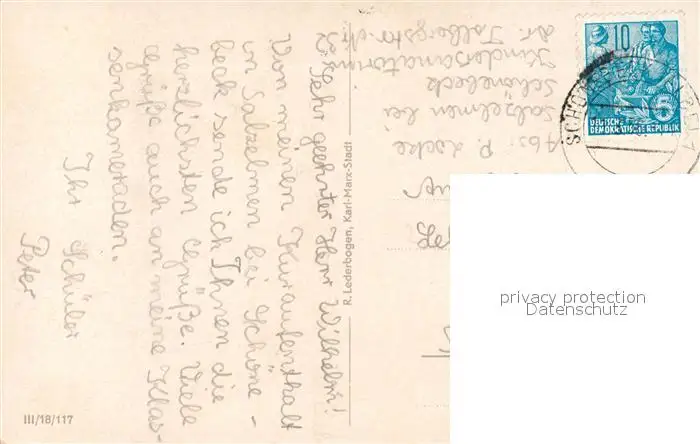 Sehr geehrter Herr Wilhelm!
Von meinen Kuraufenthalt
in Salzelmen bei Schöne-
beck sende ich Ihnen die
herzlichsten Grüße. Viele
Grüße auch an meine Klas-
senkameraden.
Ihr Schüler
Peter
R. Lederbogen, Karl-Marx-Stadt
III/18/117
Abs. P.
Salzelmen bei
Schönebeck
Kindersanatorium
Dr. Tolbergstr.
10
5
DEUTSCHE
DEMOKRATISCHE REPUBLIK
privacy protection
Datenschutz